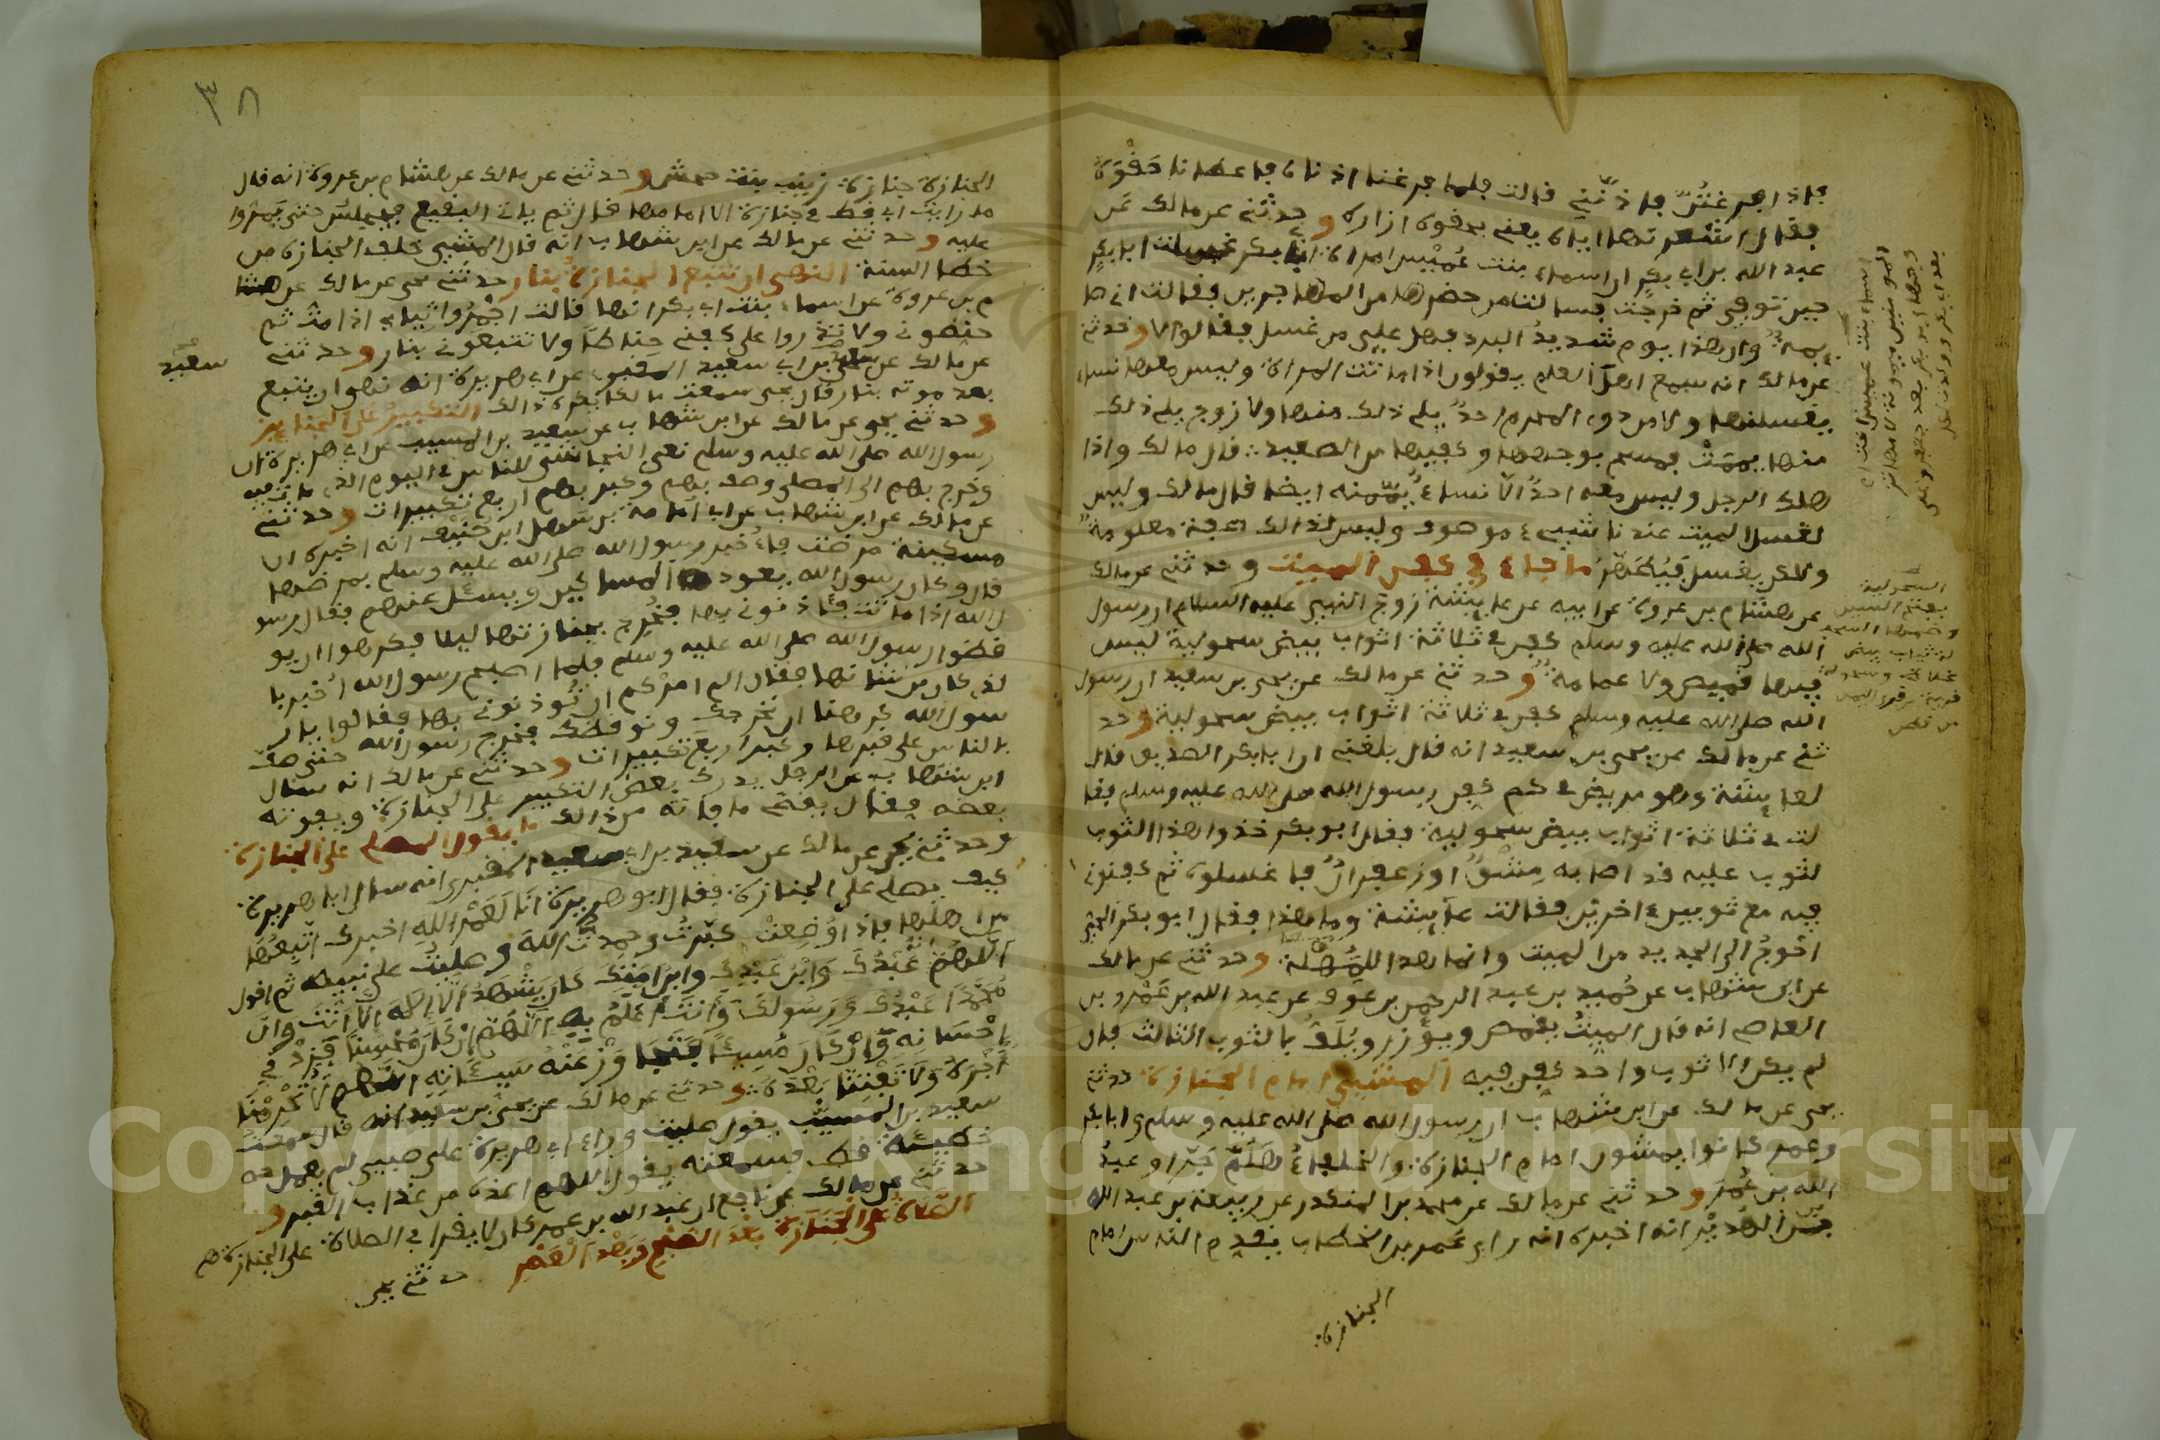 فاذا فرغتن فاذنني قالت فلما فرغنا اذناه فاعطانا حقوه
فقال اشعرنها اياه يعني بحقوه ازاره وحدثني عن مالك عن
عبد الله بن ابي بكر ان اسماء بنت عميس امراة ابي بكر غسلت ابا بكر
حين توفي ثم خرجت فسالت من حضرها من المهاجرين فقالت اني صا
يمة وان هذا يوم شديد البرد فهل علي من غسل فقالوا لا وحدثني
عن مالك انه سمع اهل العلم يقولون اذا ماتت المراة وليس معها نساء
يغسلنها ولا من ذوي المحرم احد يلي ذلك منها ولا زوج يلي ذلك
منها يممت فمسح بوجهها وكفيها من الصعيد قال مالك واذا
هلك الرجل وليس معه احد الا نساء يممنه ايضا قال مالك وليس
لغسل الميت عندنا شيء موصوف وليس لذالك صفة معلومة
ولكن يغسل فيطهر ما جاء في كفن الميت وحدثني عن مالك
عن هشام بن عروة عن ابيه عن عايشة زوج النبي عليه السلام ان رسول
الله صلى الله عليه وسلم كفن في ثلاثة اثواب بيض سحولية ليس
فيها قميص ولا عمامة وحدثني عن مالك عن يحيى بن سعيد ان رسول
الله صلى الله عليه وسلم كفن في ثلاثة اثواب بيض سحولية وحد
ثني عن مالك عن يحيى بن سعيد انه قال بلغني ان ابا بكر الصديق قال
لعايشة وهو مريض في كم كفن رسول الله صلى الله عليه وسلم فقا
لت في ثلاثة اثواب بيض سحولية فقال ابو بكر خذوا هذا الثوب
لثوب عليه قد اصابه مشق او زعفران فاغسلوه ثم كفنوني
فيه مع ثوبين اخرين فقالت عايشة وما هذا فقال ابو بكر الحي
احوج الى الجديد من الميت وانما هذا للمهلة وحدثني عن مالك
عن ابن شهاب عن حميد بن عبد الرحمن بن عوف عن عبد الله بن عمرو بن
العاص انه قال الميت يقمص ويوزر ويلف بالثوب الثالث فان
لم يكن الا ثوب واحد كفن فيه المشي امام الجنازة حدثني
يحيى عن مالك عن ابن شهاب ان رسول الله صلى الله عليه وسلم وابا بكر
وعمر كانوا يمشون امام الجنازة والخلفاء هلم جرا وعبد
الله بن عمر وحدثني عن مالك عن محمد بن المنكدر عن ربيعة بن عبد الله
بن الهدير انه اخبره انه راى عمر بن الخطاب يقدم الناس امام
الجنازة
اسماء بنت عميس
السحولية
بفتح السين
الجنازة جنازة زينب بنت جحش وحدثني عن مالك عن هشام بن عروة انه قال
ما رايت ابي قط في جنازة الا امامها قال ثم ياتي البقيع فيجلس حتى يمروا
عليه وحدثني عن مالك عن ابن شهاب انه قال المشي خلف الجنازة من
خطا السنة النهي ان تتبع الجنازة بنار حدثني يحيى عن مالك عن هشا
م بن عروة عن اسماء بنت ابي بكر انها قالت اجمروا ثيابي اذا مت ثم
حنطوني ولا تذروا على كفني حناطا ولا تتبعوني بنار وحدثني
عن مالك عن سعيد بن ابي سعيد المقبري عن ابي هريرة انه نهى ان يتبع
سعيد
بعد موته بنار قال يحيى سمعت مالكا يكره ذالك التكبير على الجنايز
وحدثني يحيى عن مالك عن ابن شهاب عن سعيد بن المسيب عن ابي هريرة ان
رسول الله صلى الله عليه وسلم نعى النجاشي للناس في اليوم الذي مات فيه
وخرج بهم الى المصلى وصف بهم وكبر بهم اربع تكبيرات وحدثني
عن مالك عن ابن شهاب عن ابي امامة بن سهل ابن حنيف انه اخبره ان
مسكينة مرضت فاخبر رسول الله صلى الله عليه وسلم بمرضها
قال وكان رسول الله يعود المساكين ويسئل عنهم فقال رسو
ل الله اذا ماتت فئاذنوني بها فخرج بجنازتها ليلا فكرهوا ان يو
قضوا رسول الله صلى الله عليه وسلم فلما اصبح رسول الله اخبر با
لذي كان من شانها فقال الم امركم ان توذنوني بها فقالوا يا ر
سول الله كرهنا ان نخرجك ونوقظك فخرج رسول الله حتى صف
بالناس على قبرها وكبر اربع تكبيرات وحدثني عن مالك انه سال
ابن شهاب عن الرجل يدرك بعض التكبير على الجنازة ويفوته
بعضه فقال يقضي ما فاته من ذالك ما يقول المصلي على الجنازة
وحدثني يحيى عن مالك عن سعيد بن ابي سعيد المقبري انه سال ابا هريرة
كيف يصلي على الجنازة فقال ابو هريرة انا لعمر الله اخبرك اتبعها
من اهلها فاذا وضعت كبرت وحمدت الله وصليت على نبيه ثم اقول
اللهم عبدك وابن عبدك وابن امتك كان يشهد الا اله الا انت وان
محمدا عبدك ورسولك وانت اعلم به اللهم ان كان محسنا فزد في
احسانه وان كان مسيئا فتجاوز عنه سيئاته اللهم لا تحرمنا
اجره ولا تفتنا بعده وحدثني عن مالك عن يحيى بن سعيد انه قال سمعت
سعيد بن المسيب يقول صليت وراء ابي هريرة على صبي لم يعمل
خطيئة قط فسمعته يقول اللهم اعذه من عذاب القبر و
حدثني عن مالك عن نافع ان عبد الله بن عمر كان لا يقرا في الصلاة على الجنازة
الصلاة على الجنازة بعد الصبح وبعد العصر
حدثني يحيى
٣٨
Copyright © King Saud University